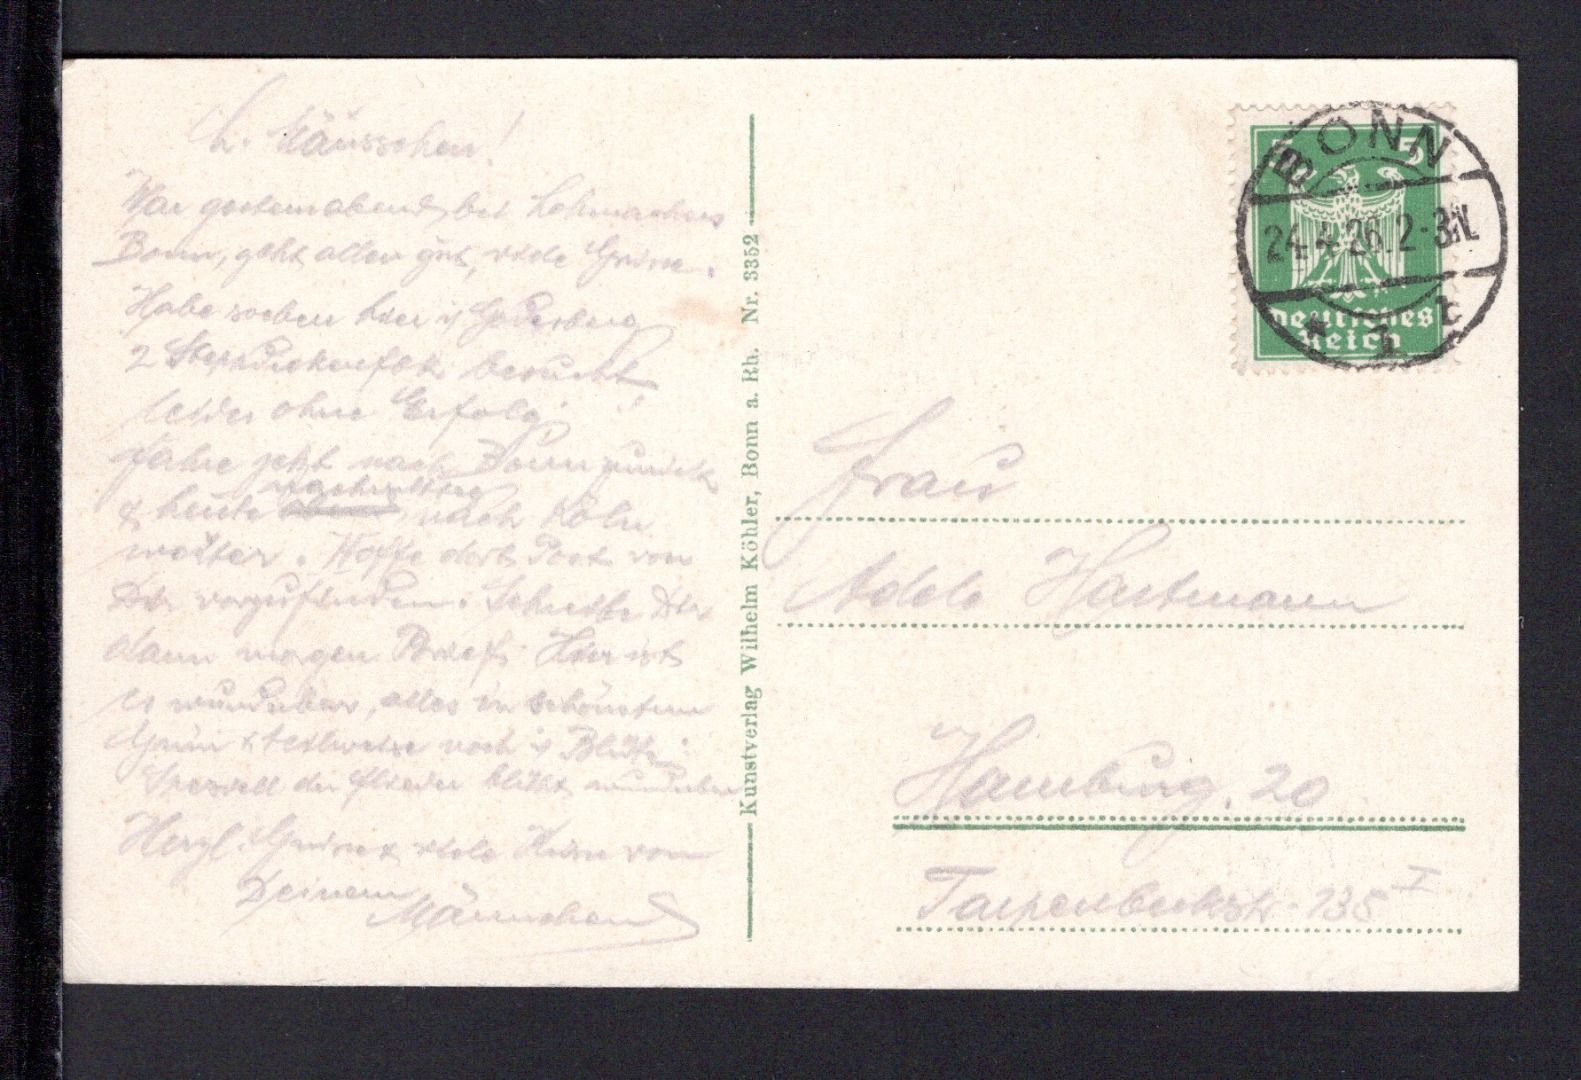 L. Mäusschen!
War gesternabend bei Lohmachers
Bonn, geht allen gut, viele Grüsse.
Habe soeben hier i/ Godesberg
2 besucht
leider ohne Erfolg!
Fahre jetzt nach Bonn zurück
nachmittag
& heute abend, nach Köln
weiter. Hoffe dort Post von
Dir vorzufinden. Schreibe Dir
dann morgen Brief. Hier ist
es wunderbar, alles in schönstem
Grün & teilweise noch i/ Blüte.
Speziell der Flieder blüht wunderbar
Herzl. Grüsse & viele Küsse von
Deinem
Männchen
Kunstverlag Wilhelm Köhler, Bonn a. Rh. Nr. 3352
BONN
24.4.26. 2-3N.
* 1 t
5
Deutsches
Reich
Frau
Adele Hartmann
Hamburg. 20
Tarpenbeckstr. 135 I